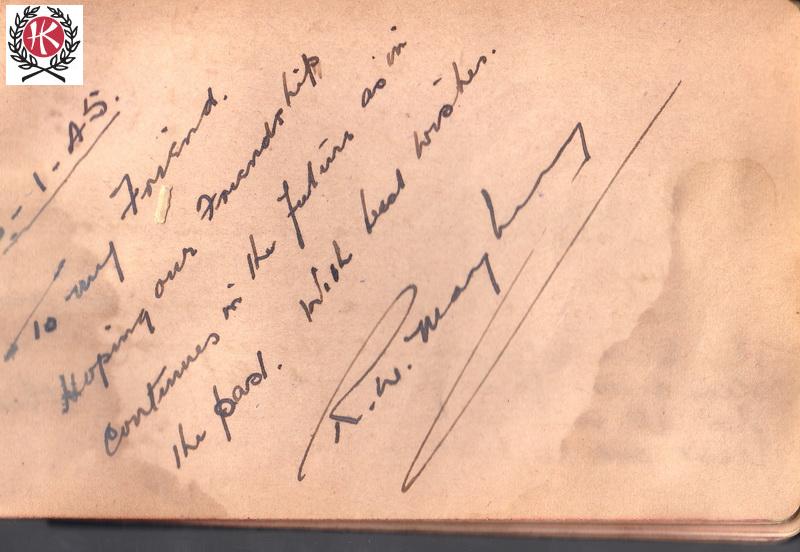 HK
-1-45.
To my Friend.
Hoping our Friendship
continues in the future as in
the past. With best wishes.
R. W.